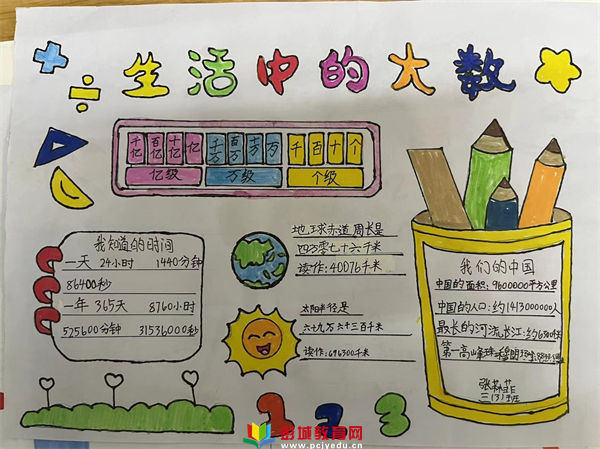 生活中的大数
千亿 百亿 十亿 亿 千万 百万 十万 万 千 百 十 个
亿级 万级 个级
我知道的时间
一天 24小时 1440分钟
86400秒
一年 365天 8760小时
525600分钟 31536000秒
地球赤道周长是
四万零七十六千米
读作:40076千米
太阳半径是
六十九万六十三百千米
读作:696300千米
我们的中国
中国的面积:9600000平方公里
中国的人口:约1413000000人
最长的河流长江:约6300
第一高峰珠穆朗玛
三(3)班
1 2 3
教育网
www.pcjyedu.cn